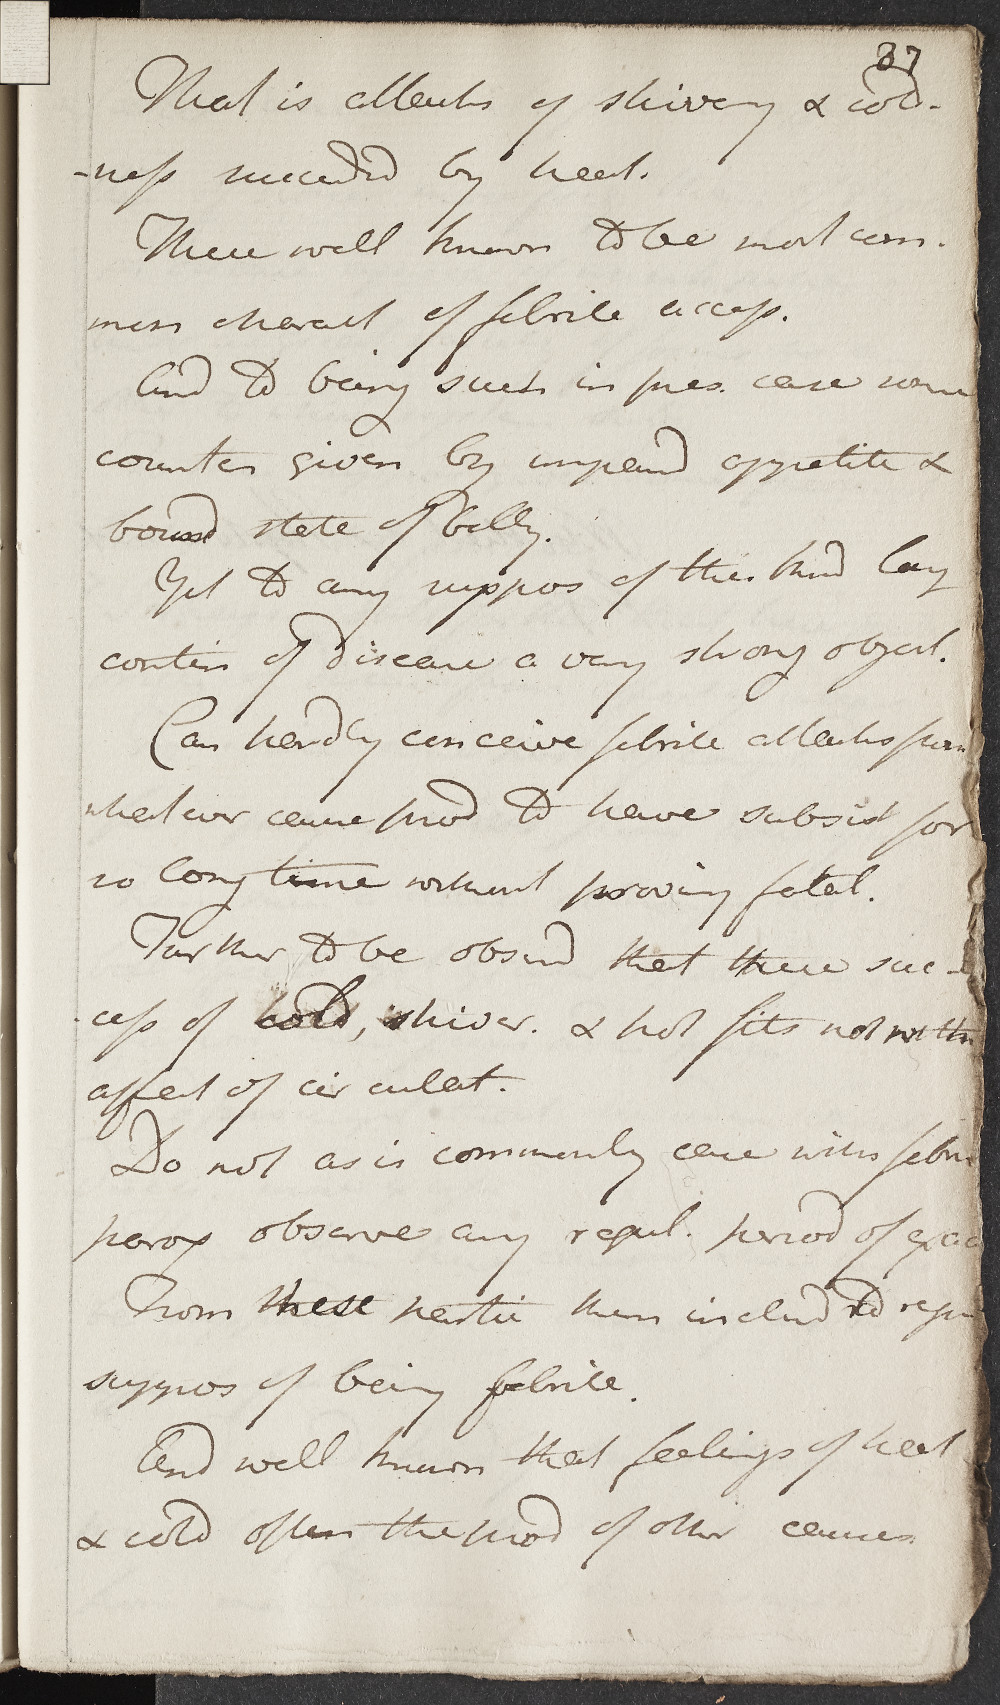 37
That is attacks of shivering & cold-
-ness succeeded by heat.
These well known to be most com-
mon charact of febrile access.
And to being such in pres. case some
counten given by impeard appetite &
bound state of belly.
Yet to any suppos of this kind long
contin of disease a very strong object.
Can hardly conceive febrile attacks from
whatever cause prod to have subsist for
so long time without proving fatal.
Further to be observd that these suc-
cess of cold, shiver. & hot fits not with
affect of circulat.
Do not as is commonly case with febrile
parox observe any regul. period of
From these partic then inclind to
suppos of being febrile.
And well known that feelings of heat
& cold often the prod of other causes